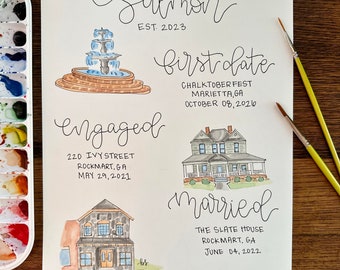 EST. 2023
first date
CHALKTOBERFEST
MARIETTA, GA
OCTOBER 08, 2026
engaged
220 IVY STREET
ROCKMART, GA
MAY 29, 2021
married
THE SLATE HOUSE
ROCKMART, GA
JUNE 04, 2022